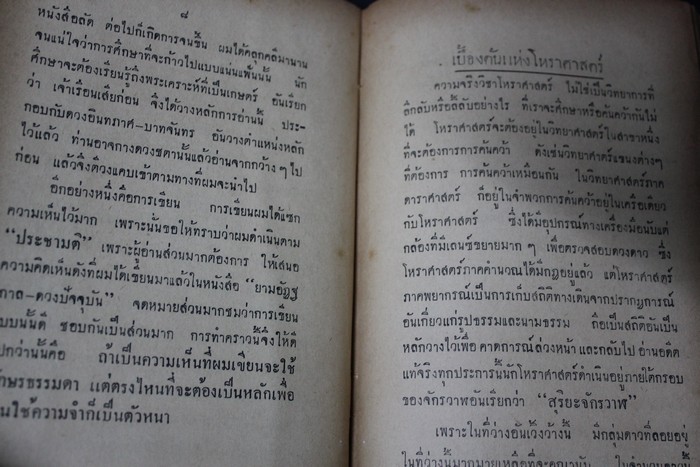 ๘
หนังสือลัด ต่อไปก็เกิดการจนขึ้น ผมได้คลุกคลีมานาน
จนแน่ใจว่าการศึกษาที่จะก้าวไปแบบแน่นแฟ้นนั้น นัก
ศึกษาจะต้องเรียนรู้ถึงพระเคราะห์ที่เป็นเกษตร์ อันเรียก
ว่า เจ้าเรือนเสียก่อน จึงได้วางหลักการอ่านนั้น ประ-
กอบกับดวงอินทภาศ-บาทจันทร อันวางตำแหน่งหลัก
ไว้แล้ว ท่านอาจกางดวงชตานั้นแล้วอ่านจากกว้าง ๆ ไป
ก่อน แล้วจึงตีวงแคบเข้าตามทางที่ผมจะนำไป
อีกอย่างหนึ่งคือการเขียน การเขียนผมได้แซก
ความเห็นไว้มาก เพราะนั้นขอให้ทราบว่าผมดำเนินตาม
“ประชามติ” เพราะผู้อ่านส่วนมากต้องการ ให้เสนอ
ความคิดเห็นดังที่ผมได้เขียนมาแล้วในหนังสือ “ยามอัฏฐ
กาล-ดวงปัจจุบัน” จดหมายส่วนมากชมว่าการเขียน
แบบนั้นดี ชอบกันเป็นส่วนมาก การทำคราวนี้จึงให้ดี
ไปกว่านั้นคือ ถ้าเป็นความเห็นที่ผมเขียนจะใช้
อักษรธรรมดา แต่ตรงไหนที่จะต้องเป็นหลักเพื่อ
ใช้ความจำก็เป็นตัวหนา
เบื้องต้นแห่งโหราศาสตร์
ความจริงวิชาโหราศาสตร์ ไม่ใช่เป็นวิทยาการที่
ลึกลับหรือลี้ลับอย่างไร ที่เราจะศึกษาหรือค้นคว้ากันไม่
ได้ โหราศาสตร์จะต้องอยู่ในวิทยาศาสตร์ในสาขาหนึ่ง
ที่จะต้องการการค้นคว้า ดังเช่นวิทยาศาตร์แขนงต่างๆ
ที่ต้องการ การค้นคว้าเหมือนกัน ในวิทยาศาสตร์ภาค
ดาราศาสตร์ ก็อยู่ในจำพวกการค้นคว้าอยู่ในเครือเดียว
กับโหราศาสตร์ ซึ่งได้มีอุปกรณ์ทางเครื่องมือนับแต่
กล้องที่มีเลนซ์ขยายมาก ๆ เพื่อตรวจสอบดวงดาว ซึ่ง
โหราศาสตร์ภาคคำนวณได้มีกฎอยู่แล้ว แต่โหราศาสตร์
ภาคพยากรณ์เป็นการเก็บสถิติทางเดินจากปรากฎการณ์
อันเกี่ยวแก่รูปธรรมและนามธรรม ถือเป็นสถิติอันเป็น
หลักวางไว้เพื่อ คาดการณ์ล่วงหน้า และกลับไป อ่านอดีต
แท้จริงทุกประการนั้นนักโหราศาสตร์ดำเนินอยู่ภายใต้กรอบ
ของจักรวาฬอันเรียกว่า “สุริยะจักรวาฬ”
เพราะในที่ว่างอันเวิ้งว้างนั้น มีกลุ่มดาวที่ลอยอยู่
ในที่ว่างนั้นมากมายเหลือที่จะคณานับ